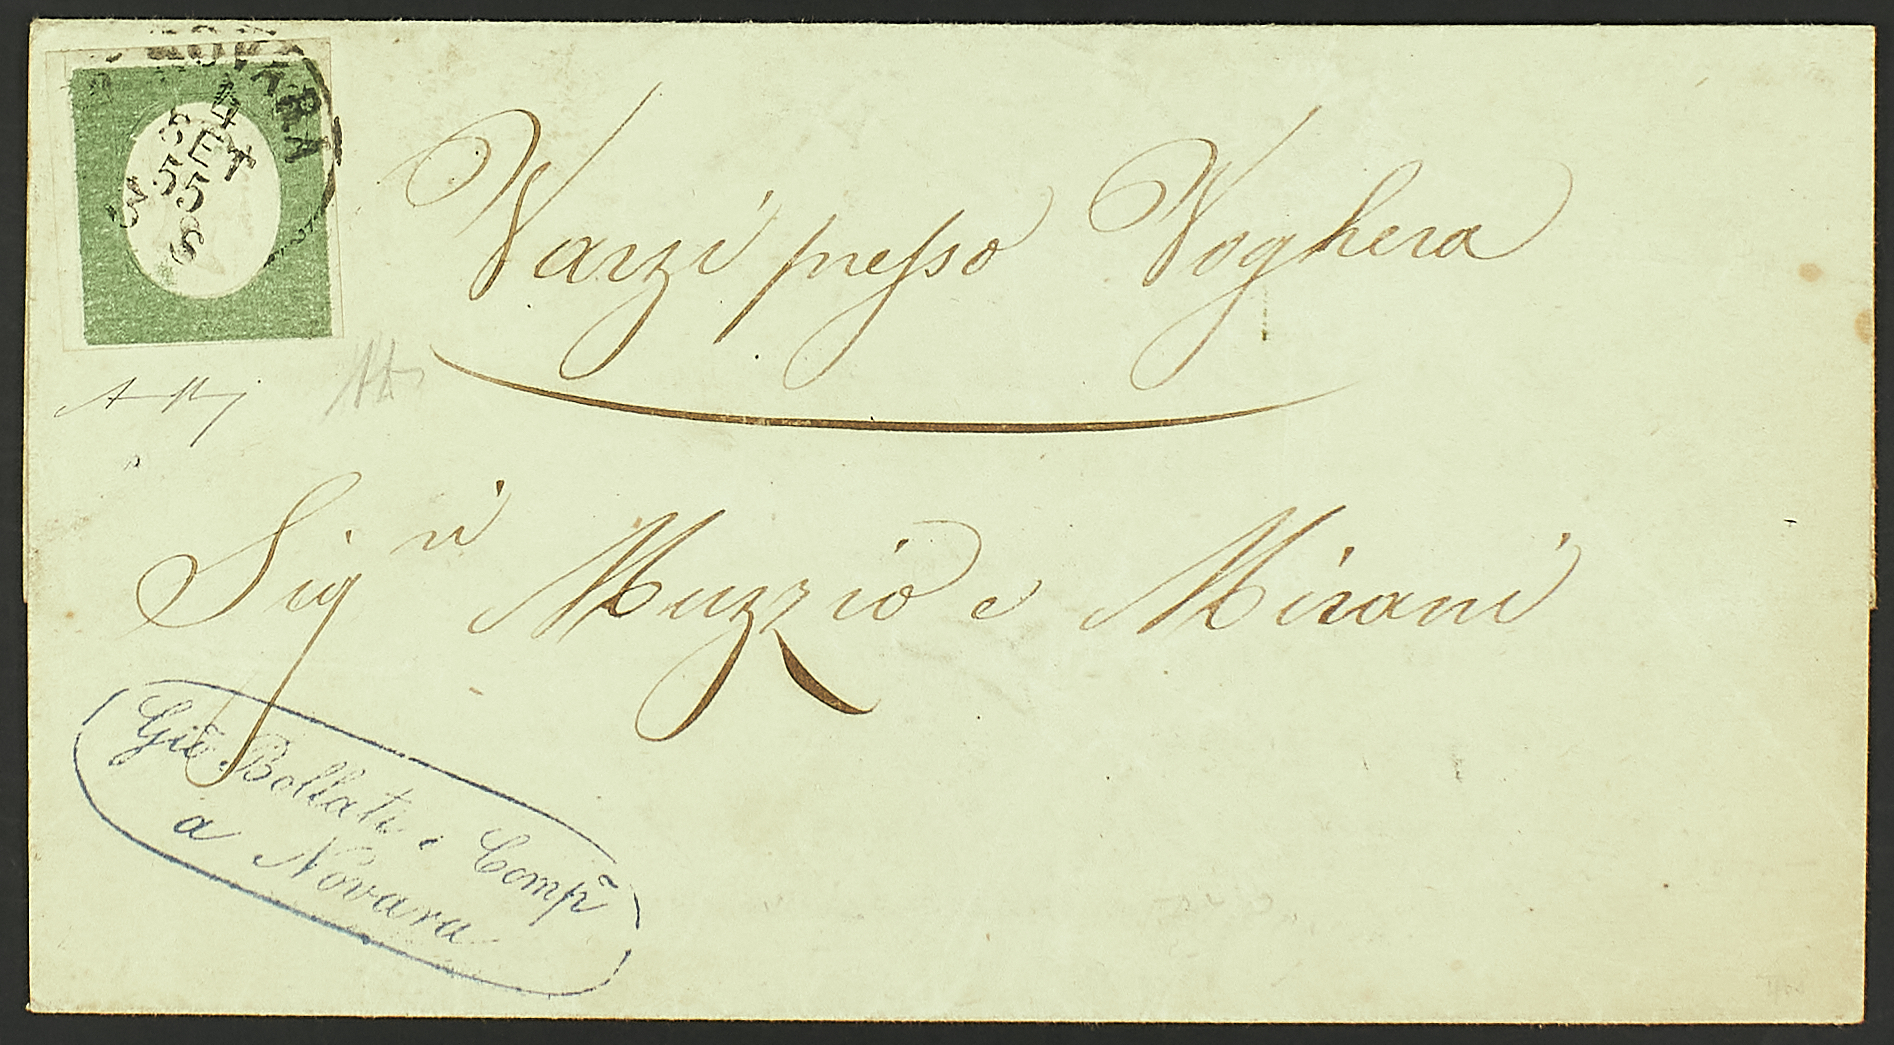 NOVARA
4
SET
55
8
Varzi presso Voghera
Sig.ri Muzzio e Mirani
Gio. Bollati e Comp.
a Novara